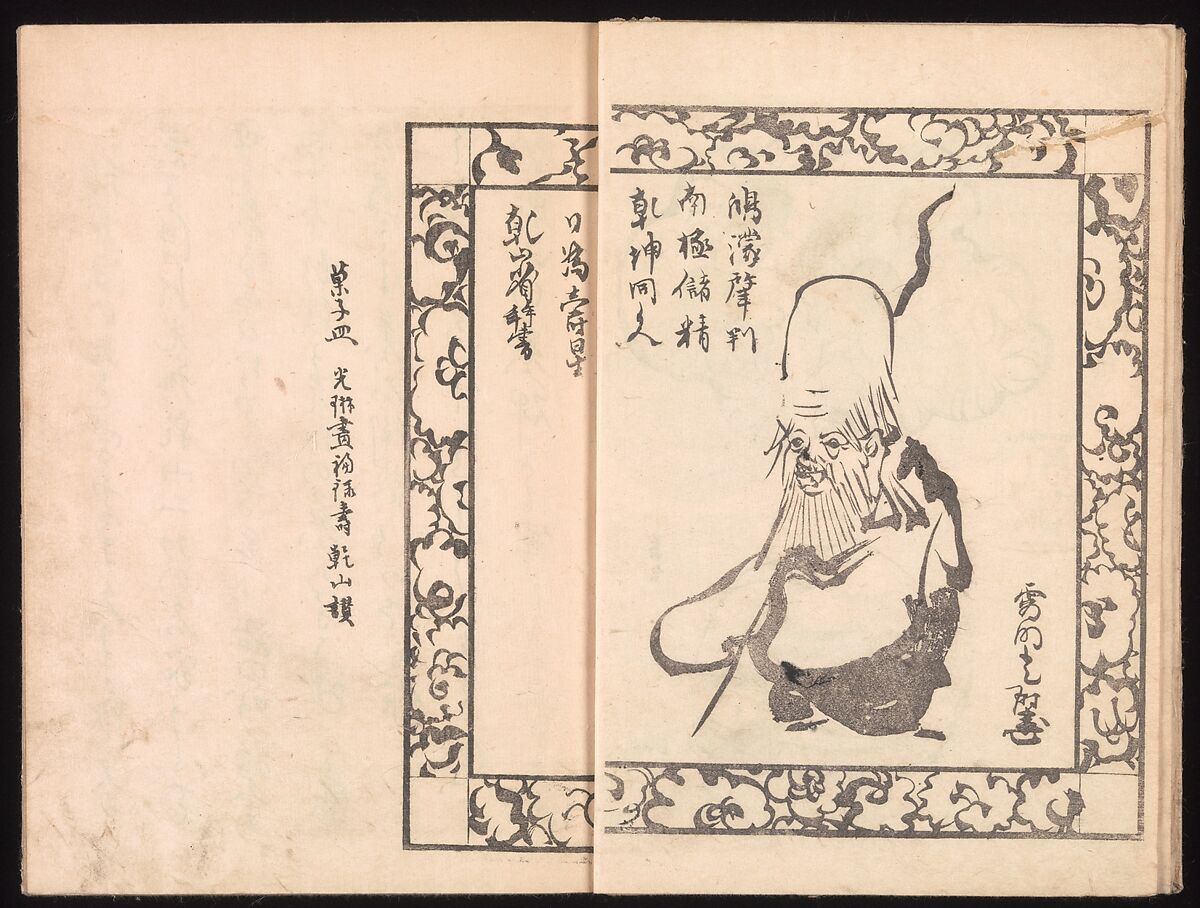 寂明光琳畫
鴻濛肇判
南極儲精
乾坤同久
曰為壽星
乾山省書
菓子皿 光琳畫福禄壽 乾山讃